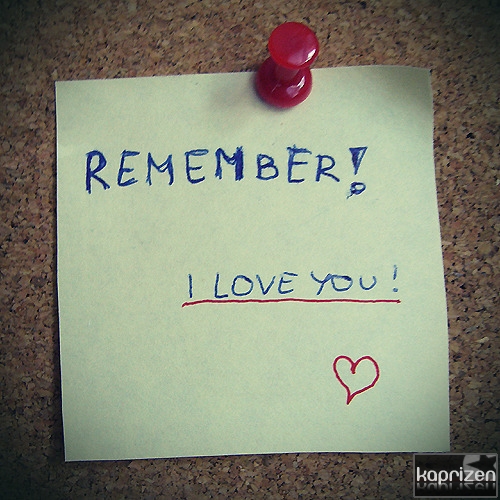 REMEMBER!
I LOVE YOU!
kaprizen